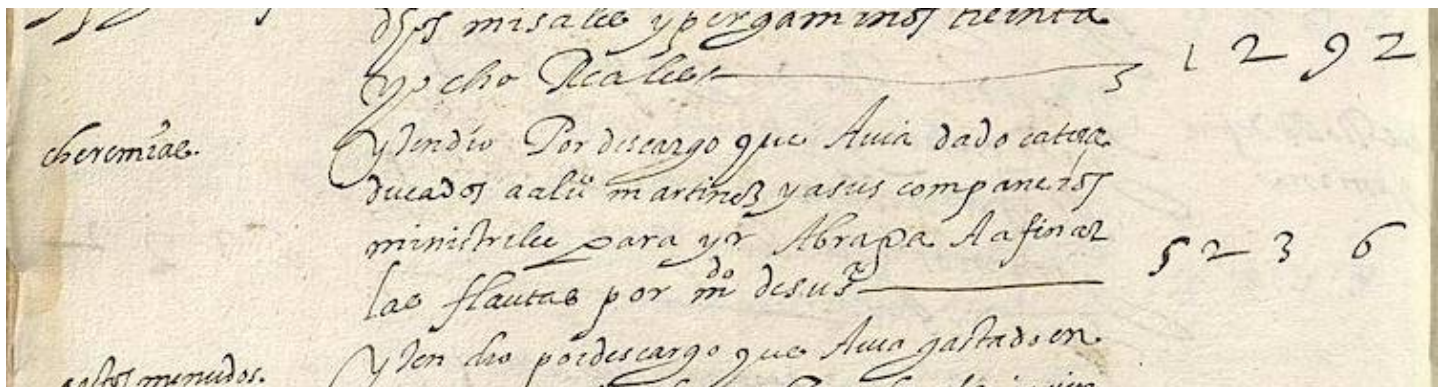 dhos misales y pergaminos treinta
y ocho Reales 1292
cheremias.
Yten dio Por descargo que Auia dado catorze
ducados a alu^o martinez y a sus companeros
ministriles para yr A braga A afinar
las flautas por m^do de su s^ra 5236
gastos menudos.
Yten dio por descargo que Auia gastado en